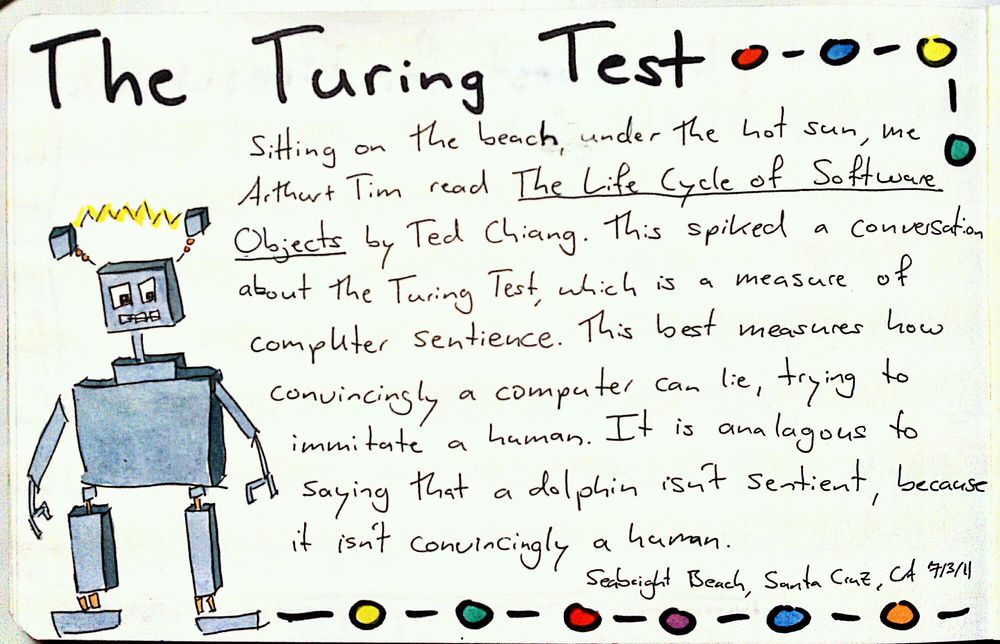 The Turing Test
Sitting on the beach, under the hot sun, me
Arthurt Tim read The Life Cycle of Software
Objects by Ted Chiang. This spiked a conversation
about the Turing Test, which is a measure of
computer sentience. This best measures how
convincingly a computer can lie, trying to
immitate a human. It is analagous to
saying that a dolphin isn't sentient, because
it isn't convincingly a human.
Seabright Beach, Santa Cruz, CA 7/3/11